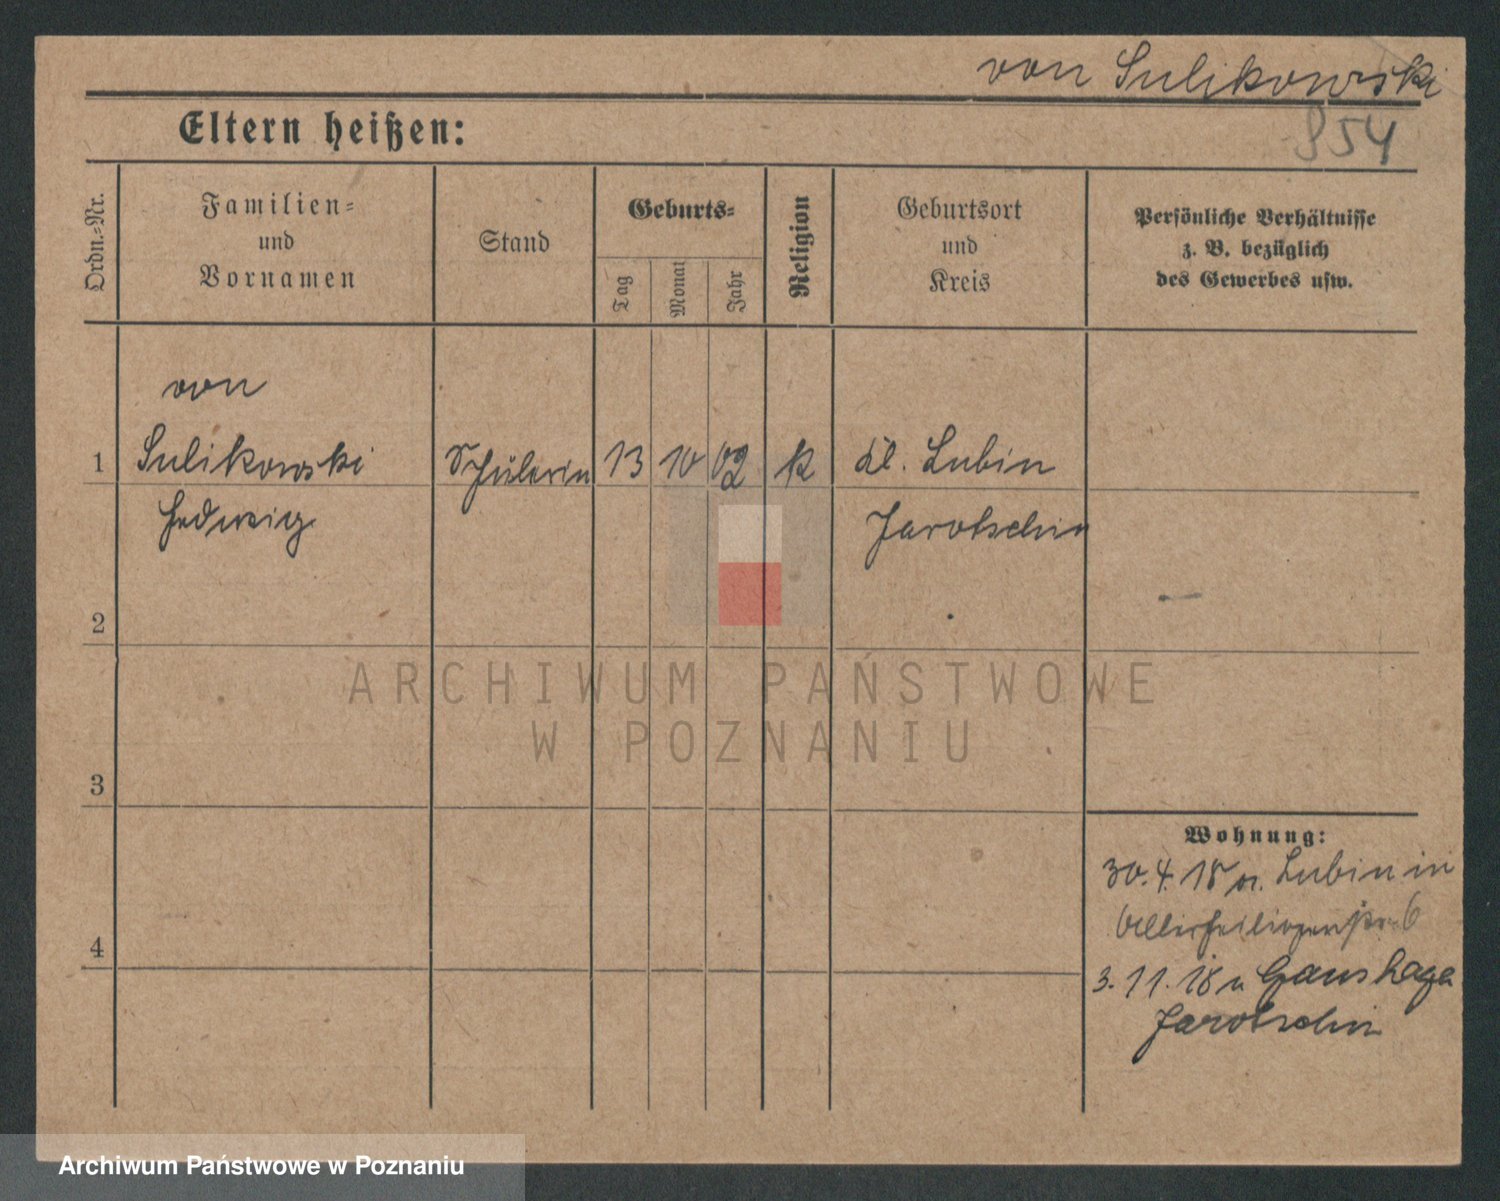 von Sulikowski
954
Eltern heißen:
Ordn.-Nr.
Familien-
und
Vornamen
Stand
Geburts-
Tag
Monat
Jahr
Religion
Geburtsort
und
Kreis
Persönliche Verhältnisse
z. B. bezüglich
des Gewerbes usw.
von
1 Sulikowski Schülerin 13 10 02 k Kl. Lubin
Hedwig Jarotschin
2
3
4
ARCHIWUM PAŃSTWOWE
W POZNANIU
Wohnung:
30.4.18 v. Lubin in
Allerheiligenstr. 6
3.11.18 n
Jarotschin
Archiwum Państwowe w Poznaniu